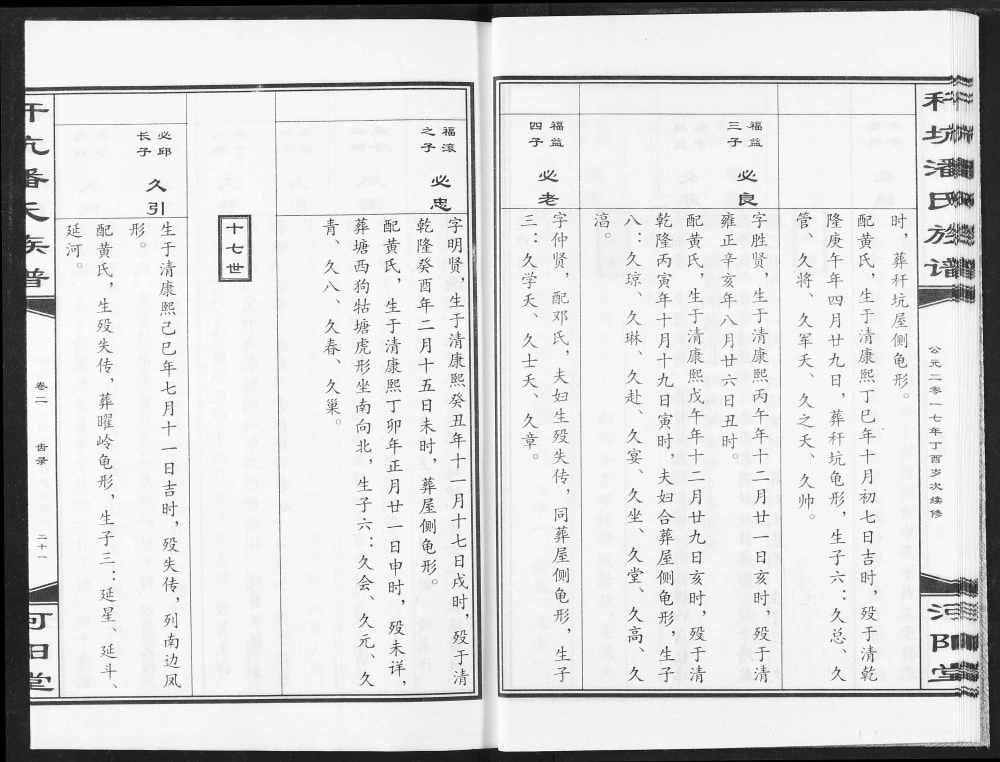 秆坑潘氏族谱
公元二零一七年丁酉岁次续修
河阳堂
时，葬秆坑屋侧龟形。
配黄氏，生于清康熙丁巳年十月初七日吉时，殁于清乾
隆庚午年四月廿九日，葬秆坑龟形，生子六：久总、久
管、久将、久军天、久之天、久帅。
福益
三子
必良
字胜贤，生于清康熙丙午年十二月廿一日亥时，殁于清
雍正辛亥年八月廿六日丑时。
配黄氏，生于清康熙戊午年十二月廿九日亥时，殁于清
乾隆丙寅年十月十九日寅时，夫妇合葬屋侧龟形，生子
八：久琼、久琳、久赴、久宴、久坐、久堂、久高、久
滈。
福益
四子
必老
字仲贤，配邓氏，夫妇生殁失传，同葬屋侧龟形，生子
三：久学天、久士天、久章。
福滚
之子
必忠
字明贤，生于清康熙癸丑年十一月十七日戌时，殁于清
乾隆癸酉年二月十五日未时，葬屋侧龟形。
配黄氏，生于清康熙丁卯年正月廿一日申时，殁未详，
葬塘西狗牯塘虎形坐南向北，生子六：久会、久元、久
青、久八、久春、久巢。
十七世
必邱
长子
久引
生于清康熙己巳年七月十一日吉时，殁失传，列南边凤
形。
配黄氏，生殁失传，葬曜岭龟形，生子三：延星、延斗、
延河。
秆坑潘氏族谱
卷二
齿录
二十一
河阳堂